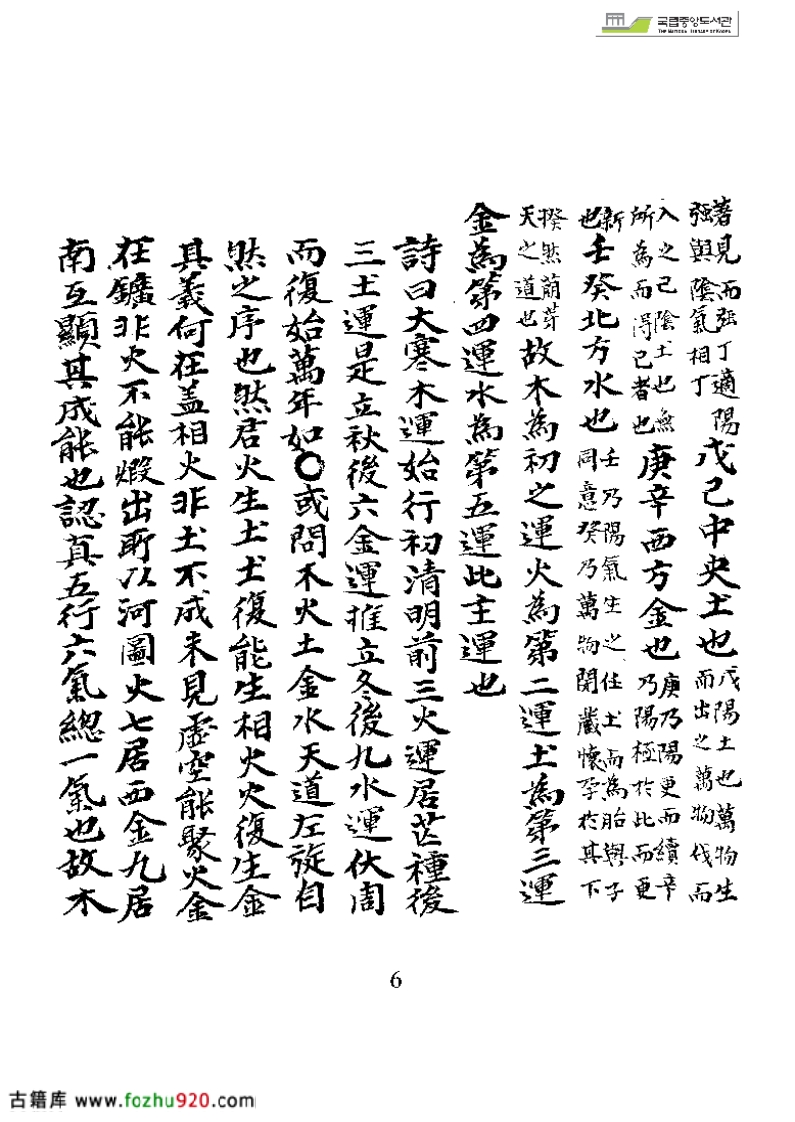 국립중앙도서관
THE NATIONAL LIBRARY OF KOREA
著見而强丁適陽
强與陰氣相丁
戊己中央土也
戊陽土也萬物生
而出之萬物伐而
入之己陰土也無
所爲而得己者也
庚辛西方金也
庚乃陽更而續辛
乃陽極於此而更
新
也
壬癸北方水也
壬乃陽氣生之任士而為胎與子
同意癸乃萬物閉藏懷孕於其下
揆然萠芽
天之道也
故木為初之運火為第二運土為第三運
金為第四運水為第五運此主運也
詩曰大寒木運始行初清明前三火運居芒種後
三土運是立秋後六金運推立冬後九水運伏周
而復始萬年如〇或問木火土金水天道左旋自
然之序也然君火生土土復能生相火火復生金
其義何在盖相火非土不成未見虛空能聚火金
在鑛非火不能煆出所以河圖火七居西金九居
南互顯其成能也認真五行六氣總一氣也故木
6
古籍库 www.fozhu920.com